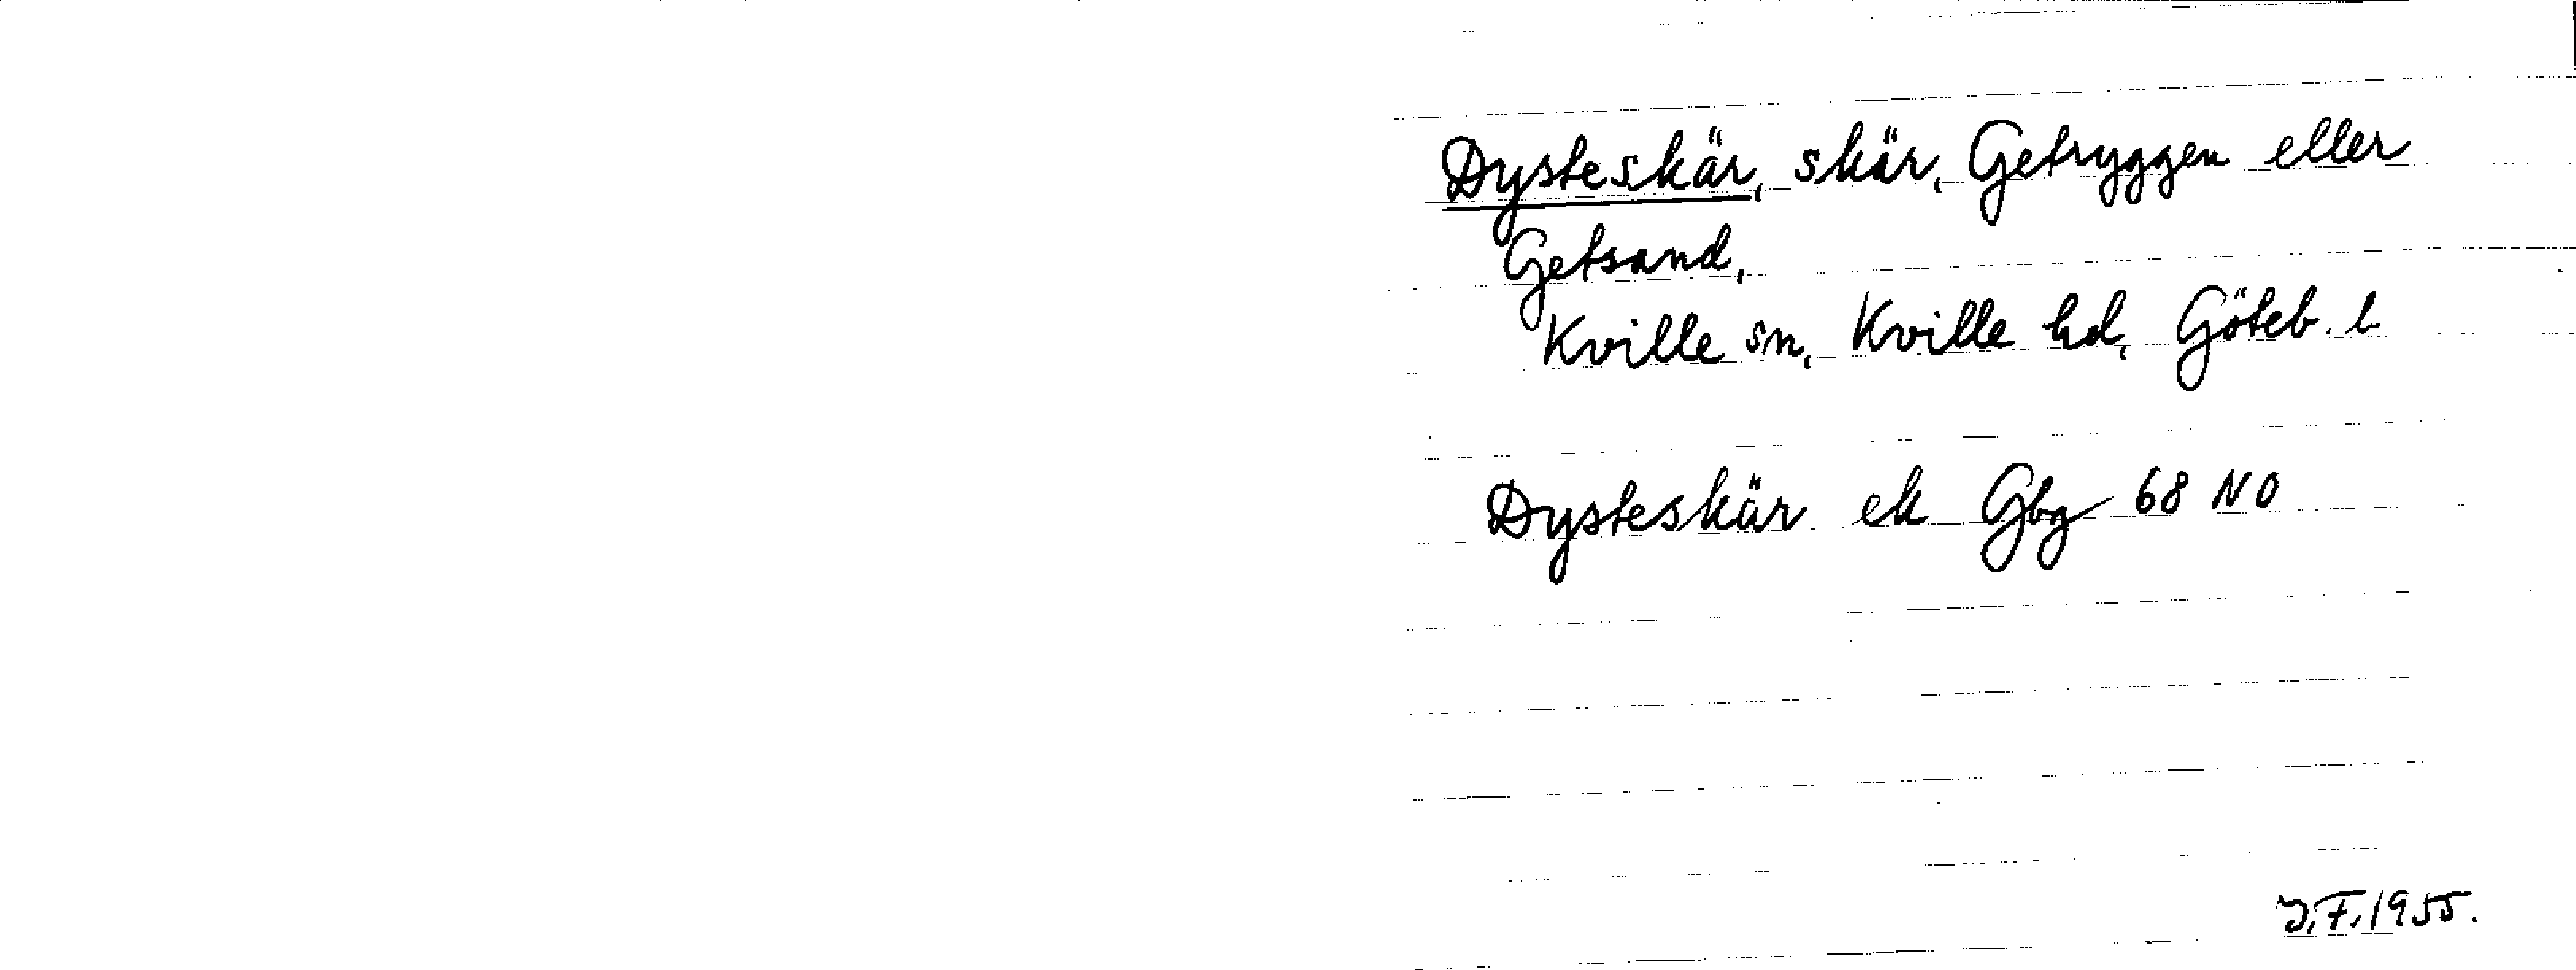 Dysteskär, skär, Getryggen eller
Getsand,
Kville sn, Kville hd, Göteb. l.
Dysteskär ek Gbg 68 NO
J.F. 1955.